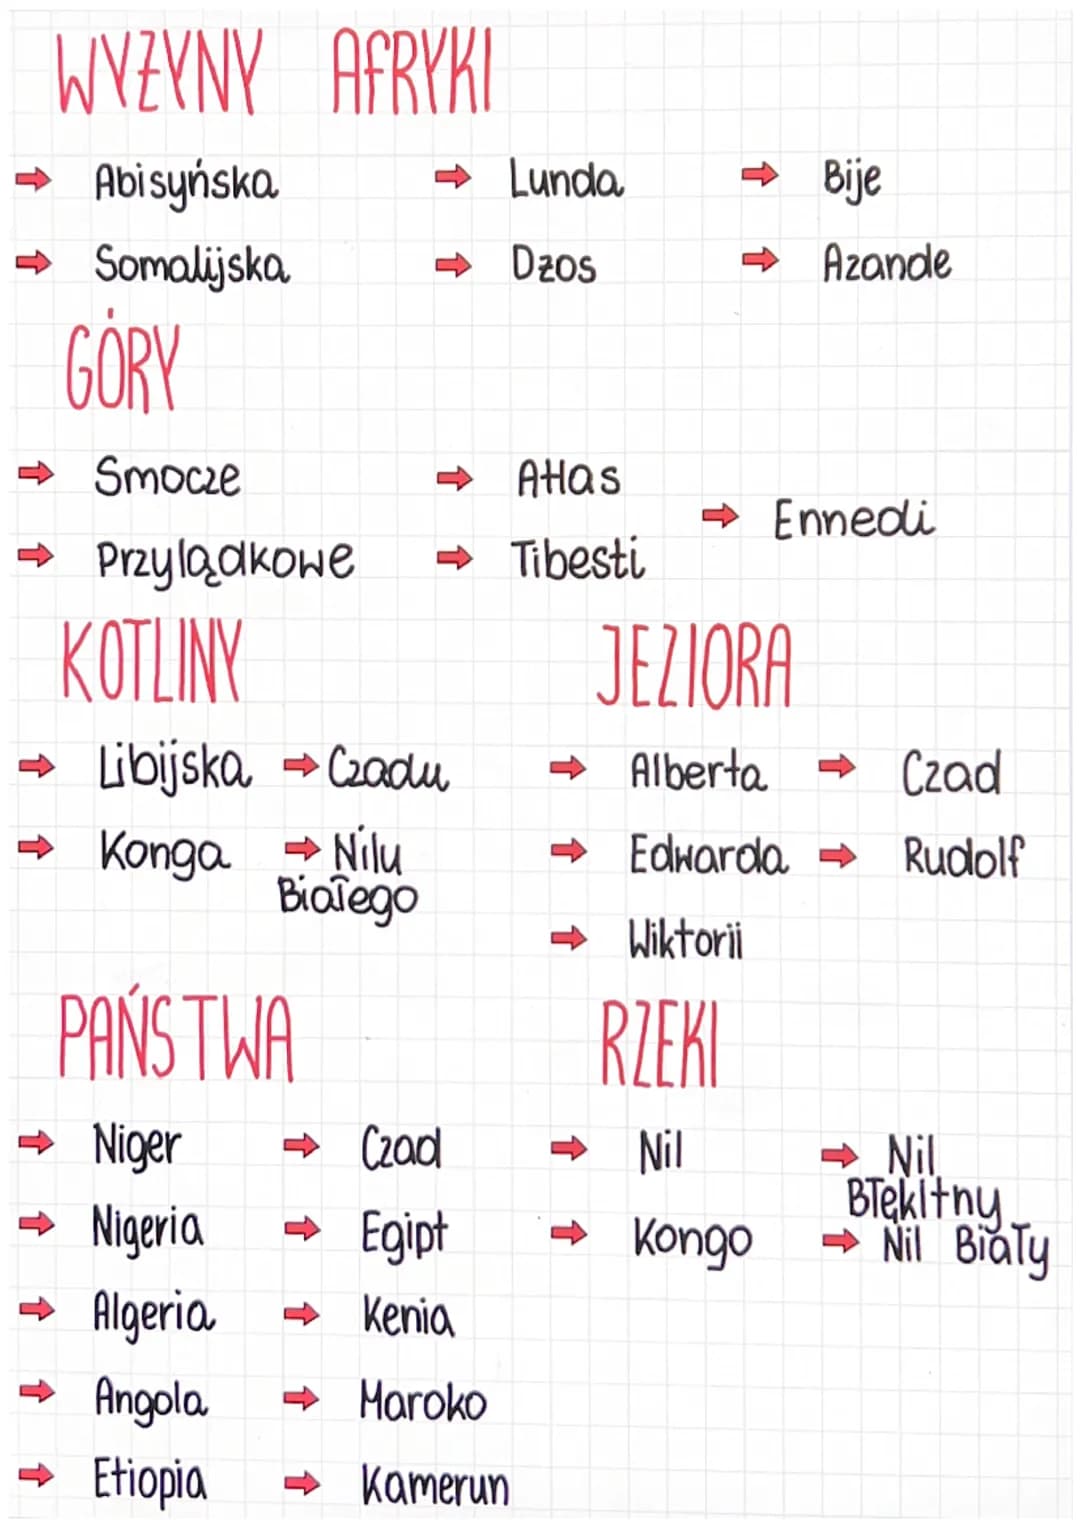 WYŻYNY AFRYKI
→ Abisyńska → Lunda → Bije
→ Somalijska → Dzos → Azande
GÓRY
→ Smocze → Atlas
→ Ennedi
→ Przylądkowe → Tibesti
KOTLINY JEZIORA
→ Libijska → Czadu → Alberta → Czad
→ Konga → Nilu → Edwarda → Rudolf
Białego
→ Wiktorii
PAŃSTWA RZEKI
→ Niger → Czad → Nil → Nil
Błękitny
→ Nigeria → Egipt → Kongo → Nil Biały
→ Algeria → Kenia
→ Angola → Maroko
→ Etiopia → Kamerun